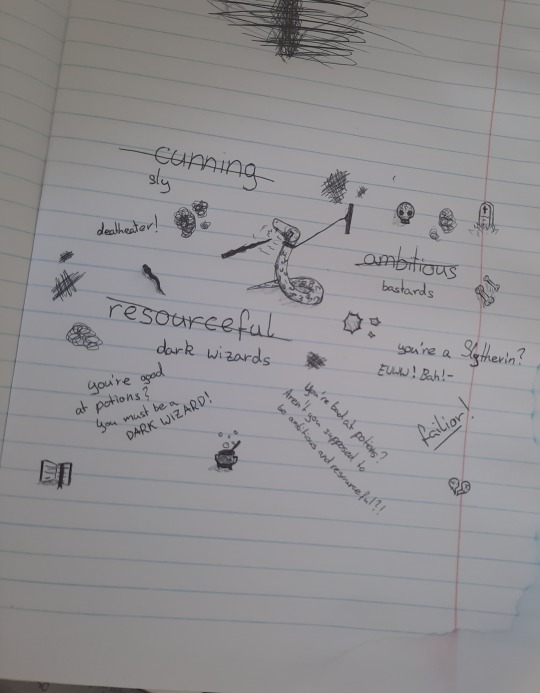 cunning
sly
deatheater!
ambitious
bastards
resourceful
dark wizards
you're a Slytherin?
EUWW! Bah!-
you're good
at potions?
you must be a
DARK WIZARD!
You're bad at potions?
Aren't you supposed to
be ambitious and resourceful?!!
failior!